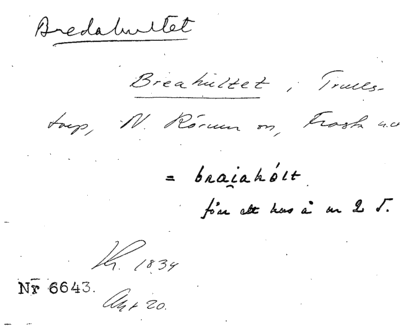 Bredahultet
Breahultet, Trulls-
torp, N. Rörum sn, Frosta
= braiahólt
för ett hus å nr 2 T.
1834
Nr 6643.
20.